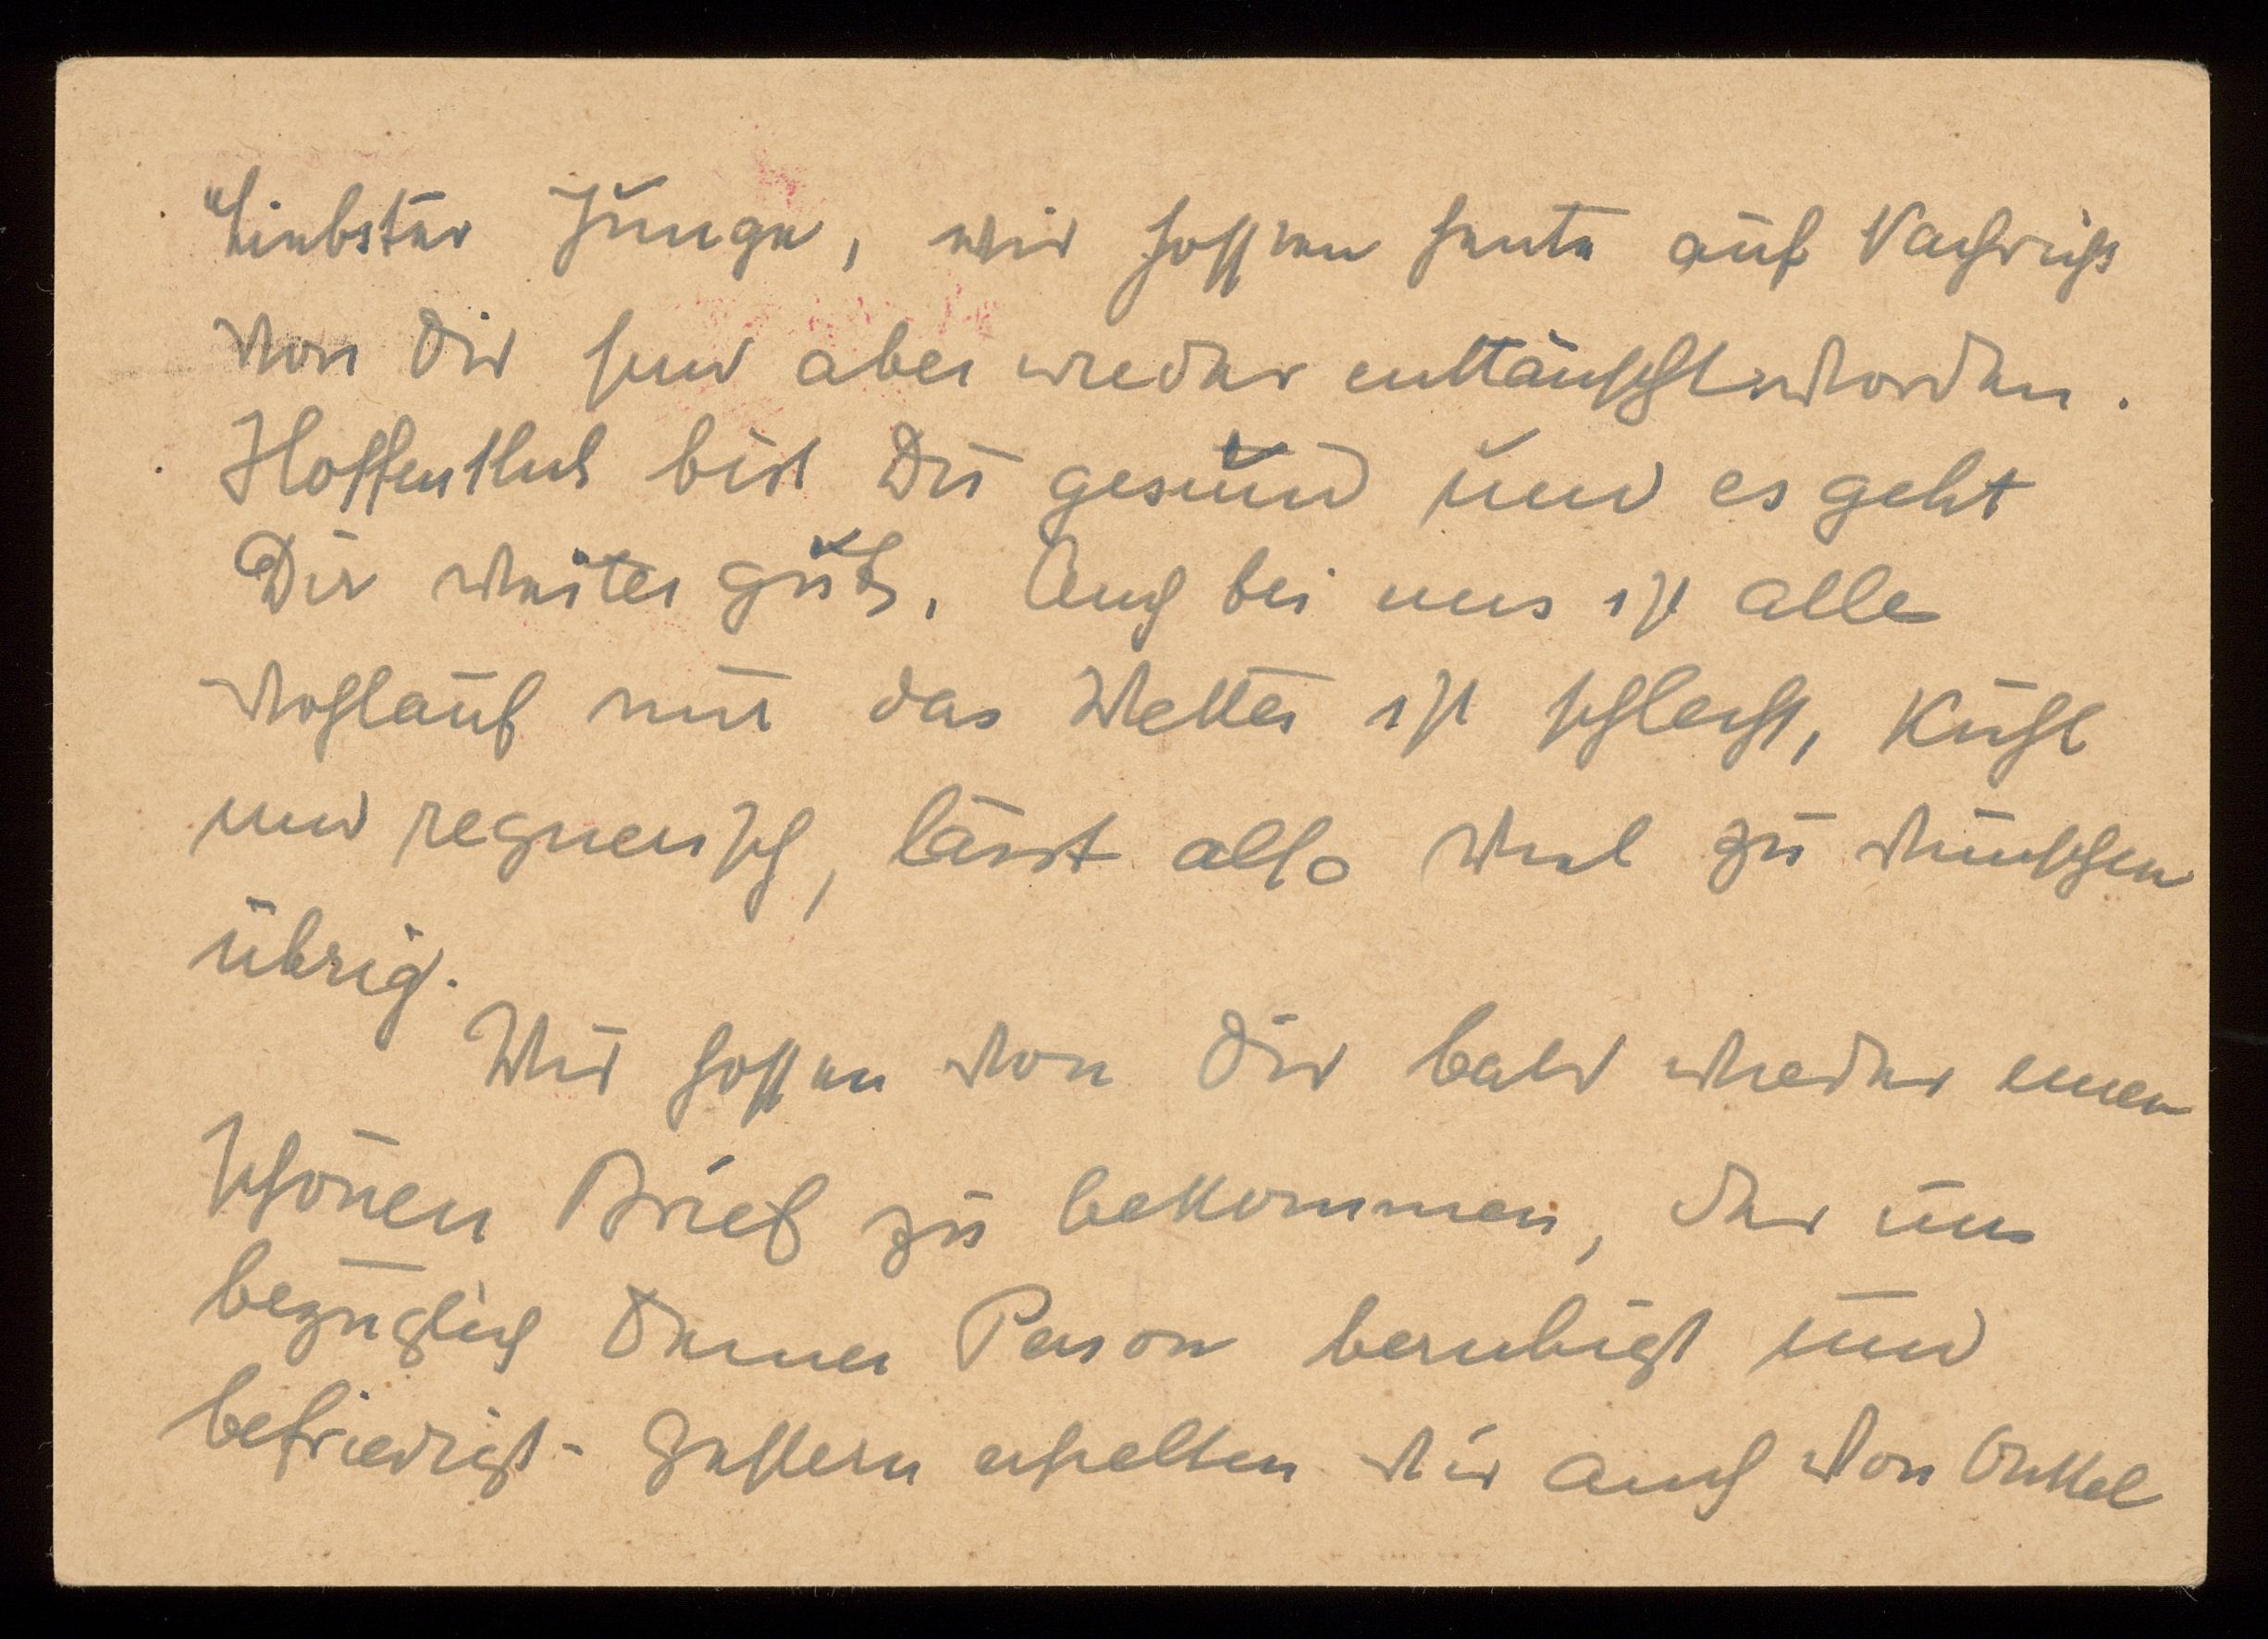 "Liebster Junge, wir hoffen heute auf Nachricht
von Dir sind aber wieder enttäuscht worden.
Hoffentlich bist Du gesund und es geht
Dir weiter gut. Auch bei uns ist alle
wohlauf nur das Wetter ist schlecht, kühl
und regnerisch, lässt also viel zu wünschen
übrig.
Wir hoffen von Dir bald wieder einen
schönen Brief zu bekommen, der uns
bezüglich Deiner Person beruhigt und
befriedigt - Gestern erhielten wir auch von Onkel